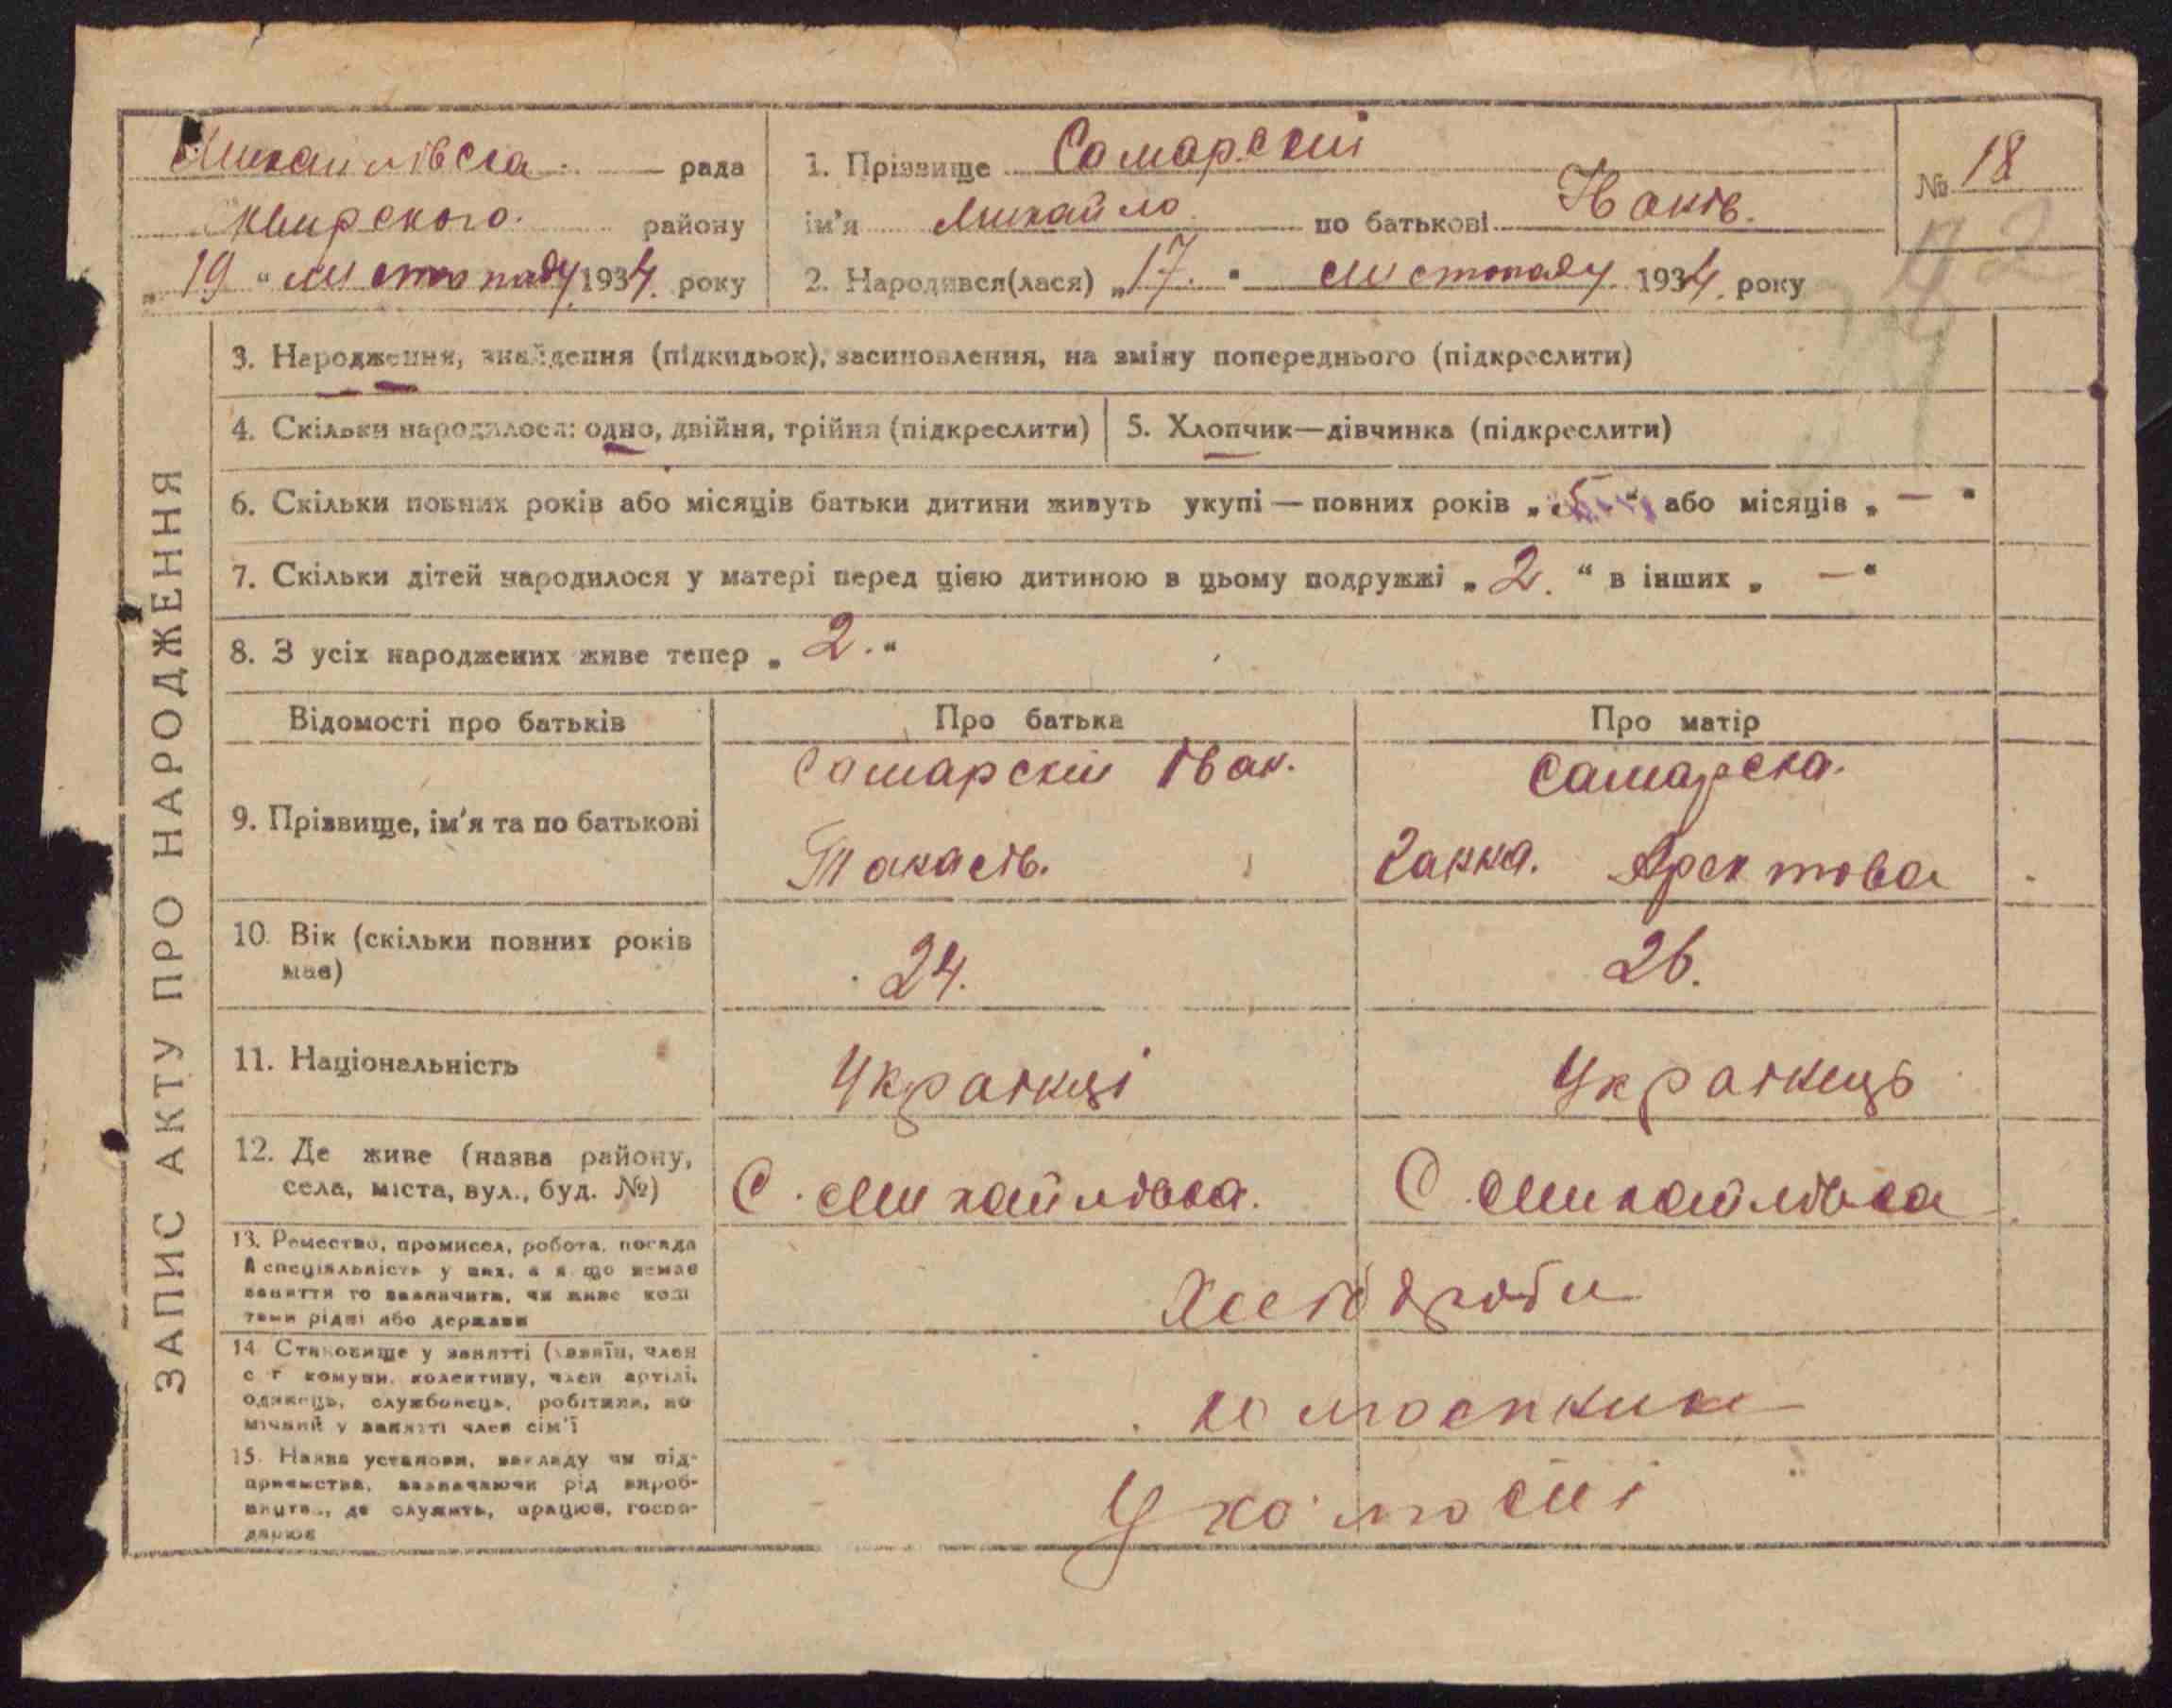 Михайлівска рада
Квирского району
„ 19 “ листопаду 1934. року
1. Прізвище Самарский
ім'я Михайло по батькові Іванів.
2. Народився(лася) „17.“ листопаду 1934. року
№ 18
ЗАПИС АКТУ ПРО НАРОДЖЕННЯ
3. Народження, знайдення (підкидьок), засиновлення, на зміну попереднього (підкреслити)
4. Скільки народилося: одно, двійня, трійня (підкреслити)
5. Хлопчик—дівчинка (підкреслити)
6. Скільки повних років або місяців батьки дитини живуть укупі — повних років „ 5 “ або місяців „ — “
7. Скільки дітей народилося у матері перед цією дитиною в цьому подружжі „ 2. “ в інших „ — “
8. З усіх народжених живе тепер „ 2. “
Відомості про батьків
Про батька
Про матір
9. Прізвище, ім'я та по батькові
Самарский Іван.
Самарска.
Ганна.
10. Вік (скільки повних років
має)
24.
26.
11. Національність
Украінці
Украінець
12. Де живе (назва району,
села, міста, вул., буд. №)
С. Михайлівка.
С. Михайлівка
13. Ремество, промисел, робота, посада
й спеціяльність у них, а якщо немає
заняття то зазначити, чи живе кош
тами рідні або держави
Хлібороби
14. Становище у занятті (хазяїн, член
с г комуни, колективу, член артілі,
одинець, службовець, робітник, по
мічний у занятті член сім'ї
15. Назва установи, закладу чи під-
приємства, зазначаючи рід вироб-
ництва, де служить, працює, госпо-
дарює
У